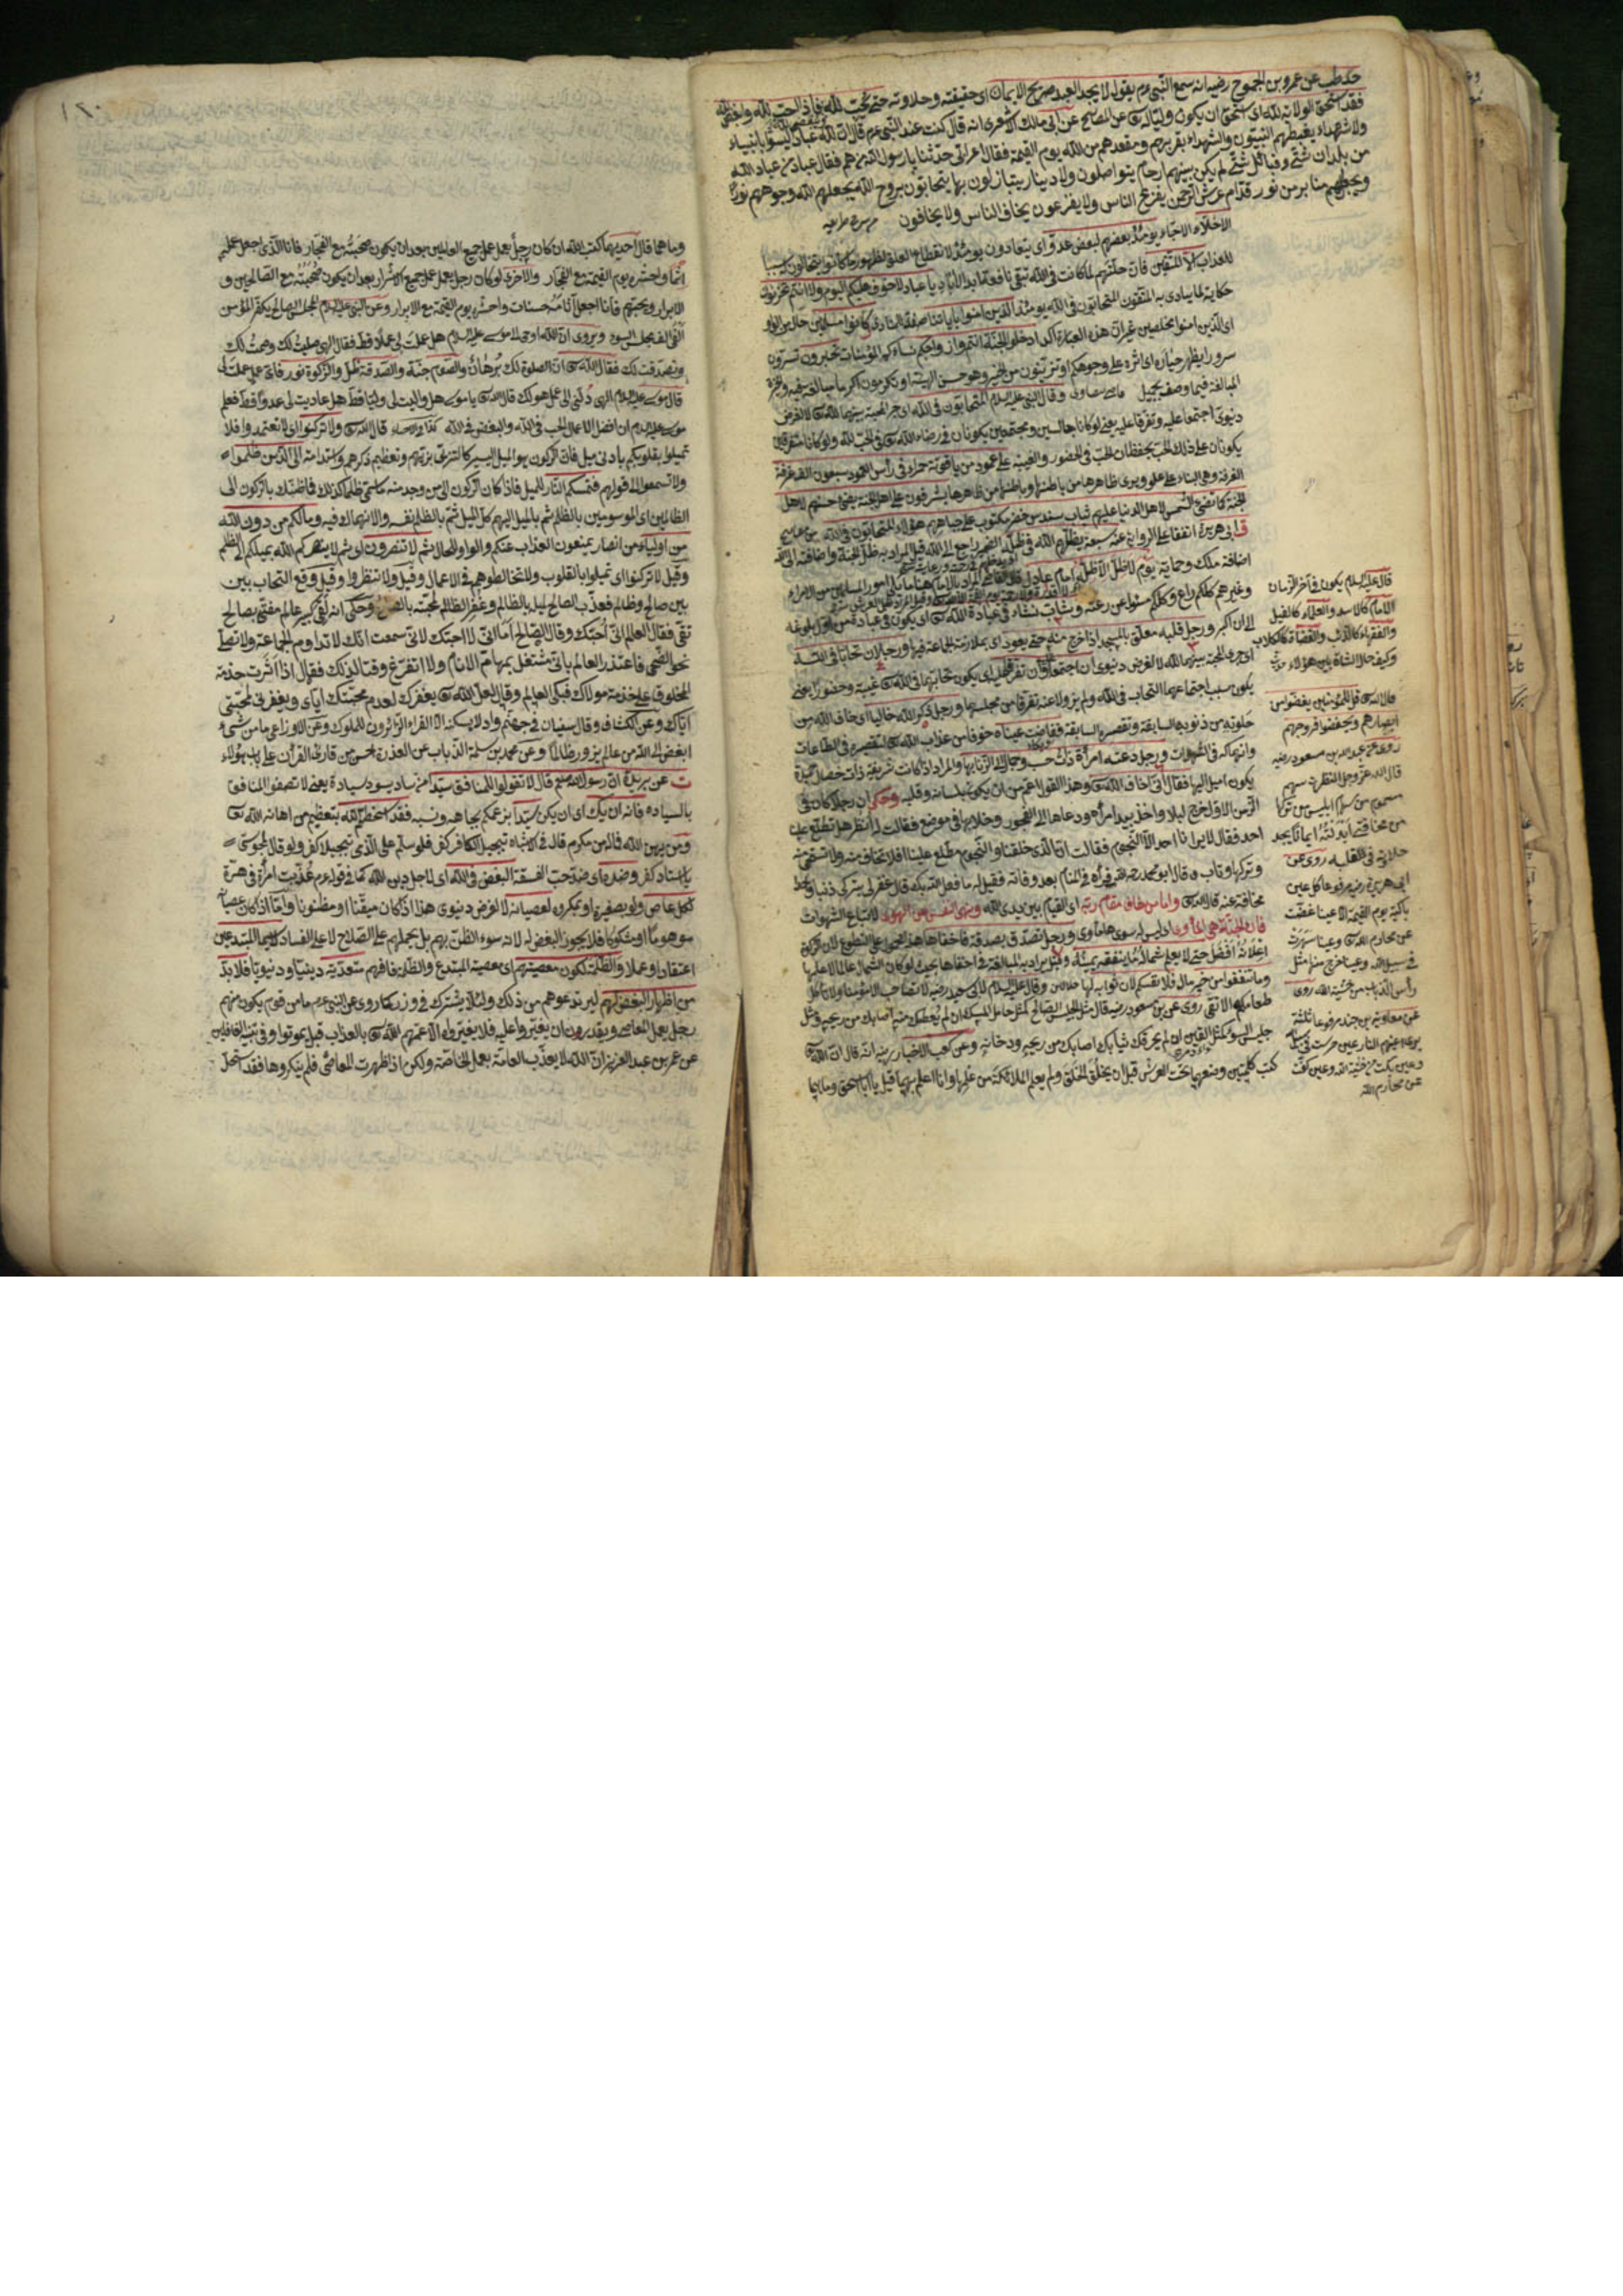 حد طب عن عمرو بن الجموح رضيه انه سمع النبى عم يقول لا يجد العبد صريح الايمان اى حقيقته وحلاوته حتى يحب لله فاذا احب لله وابغض لله
فقد استحق الولاية لله اى استحق ان يكون وليا لله عن المصابيح عن ابى مالك الاشعرى انه قال كنت عند النبى عم قال ان لله عبادا ليسوا بانبياء
ولا شهداء يغبطهم النبيون والشهداء بقربهم ومقعدهم من الله يوم القيمة فقال اعرابى حدثنا يا رسول الله من هم فقال عباد من عباد الله
من بلدان شتى وقبائل شتى لم يكن بينهم ارحام يتواصلون ولا دينار يتباذلون بها يتحابون بروح الله يجعل الله وجوههم نورا
ويجعل لهم منابر من نور قدام عرش الرحمن يفزع الناس ولا يفزعون يخاف الناس ولا يخافون
الاخلاء الاحباء يومئذ بعضهم لبعض عدو اى يتعادون يومئذ لانقطاع العلق لظهور ما كانوا يتخالون سببا
للعذاب الا المتقين فان خلتهم لما كانت فى الله تبقى نافعة ابد الآباد يا عباد لا خوف عليكم اليوم ولا انتم تحزنون
حكاية لما ينادى به المتقون المتحابون فى الله يومئذ الذين امنوا باياتنا صفة المنادى وكانوا مسلمين حال من الواو
اى الذين امنوا مخلصين غير ان هذه العبارة آكد ادخلوا الجنة انتم وازواجكم نساءكم المؤمنات تحبرون تسرون
سرورا يظهر حباره اى اثره على وجوهكم او تزينون من الحبر وهو حسن الهيئة او تكرمون اكراما يبالغ فيه والحبرة
المبالغة فيما وصف بجميل وقال النبى عليه السلام المتحابون فى الله اى جرى المحبة بينهما لله لا لغرض
دنيوى اجتمعا عليه وتفرقا عليه يعنى لو كانا جالسين ومجتمعين يكونان فى رضاء الله فى الحب لله ولو كانا متفرقين
يكونان على ذلك الحب يحفظان الحب فى الحضور والغيبة على عمود من ياقوتة حمراء فى رأس العمود سبعون الف غرفة
الغرفة وهى البناء على علو ويرى ظاهرها من باطنها وباطنها من ظاهرها يشرفون على اهل الجنة يضئ حسنهم لاهل
الجنة كما تضئ الشمس لاهل الدنيا عليهم ثياب سندس خضر مكتوب على جباههم هؤلاء المتحابون فى الله
ق ابى هريرة اتفقا على الرواية عنه سبعة يظلهم الله فى ظله الضمير راجع الى الله قيل المراد به ظل الجنة واضافته الى الله
اضافة ملك وحماية يوم لا ظل الا ظله امام عادل
وغيرهم كلكم راع وكلكم مسئول عن رعيته وشاب نشاء فى عبادة الله اى يكون فى عبادة من اول بلوغه
الى ان اكبر ورجل قلبه معلق بالمسجد اذا خرج منه حتى يعود اى بملازمة الجماعة فيها ورجلان تحابا فى الله
اى جرى المحبة بينهما لله لا لغرض دنيوى ان اجتمعا وان تفرقا
يكون سبب اجتماعهما التحاب فى الله ولم يزولا عنه تفرقا من مجلسهما ورجل ذكر الله خاليا اى خاف الله من
خلوته من ذنوبه السابقة وتقصيره السابقة ففاضت عيناه خوفا من عذاب الله لتقصيره فى الطاعات
وانهماكه فى الشهوات ورجل دعته امرأة ذات حسب وجمال الى الزنا بها والمراد اذا كانت شريفة ذات خصال حميدة
يكون اميل اليها فقال انى اخاف الله وهذا القول اعم من ان يكون بلسانه وقلبه وحكى ان رجلا كان فى
الزمن الاول اخرج ليلا واخذ بيد امرأة ودعاها الى الفجور وخلا بها فى موضع فقالت له انظر هل تطلع علينا
احد فقال لا يرانا احد الا النجوم فقالت ان الذى خلقنا والنجوم مطلع علينا افلا تخاف منه ولا تستحى منه
وتركها وتاب قال ابو محمد رحمه الله فرأه فى المنام بعد وفاته فقيل له ما فعل الله بك قال غفر لى بتركى ذنبا واحدا
مخافة عنه قال الله واما من خاف مقام ربه اى القيام بين يدى الله ونهى النفس عن الهوى لاتباع الشهوات
فان الجنة هى المأوى اى ليس له سوى ها مأوى ورجل تصدق بصدقة فاخفاها
اعلانه افضل حتى لا يعلم شماله ما ينفقه يمينه وقيل يراد به المبالغة فى اخفاها بحيث لو كان الشمال عالما لا علمها
وما تنفقوا من خير مال فلانفسكم لان ثوابه لها وقال عليه السلام لا تصاحب الا مؤمنا ولا يأكل
طعامك الا تقى روى عن بن مسعود رضيه قال مثل الجليس الصالح كمثل حامل المسك ان لم يعطك منه اصابك من ريحه ومثل
جليس السوء كمثل القين ان لم يحرقك ثيابك اصابك من ريحه ودخانه وعن كعب الاخبار رضيه انه قال ان الله
كتب كلمتين وضعهما تحت العرش قبل ان يخلق الخلق ولم يعلم الملائكة من علمها وانا اعلم بهما قيل يا ابا اسحق وما هما
قال عليه السلام يكون فى آخر الزمان
الامام كالاسد والعلماء كالفيل
والفقراء كالذئب والقضاة كالكلاب
وكيف حال الشاة بين هؤلاء
قال الله قل للمؤمنين يغضوا من
ابصارهم ويحفظوا فروجهم
روى عن عبد الله بن مسعود رضيه
قال الله عز وجل النظرة سهم
مسموم من سهام ابليس من تركها
من مخافتى ابدلته ايمانا يجد
حلاوته فى القلب روى عن
ابى هريرة رضيه مرفوعا كل عين
باكية يوم القيمة الا عينا غضت
عن محارم الله وعينا سهرت
فى سبيل الله وعينا خرج منها مثل
رأس الذباب من خشية الله روى
عن معاوية بن جند مرفوعا ثلثة
عين حرست فى سبيل الله
وعين بكت من خشية الله وعين كفت
عن محارم الله
وما هما قال احديهما كتب الله ان كان رجل يعمل عمل جميع العالمين بعد ان يكون صحبته مع الفجار فانا الذى اجعل عمله
اثما واحشره يوم القيمة مع الفجار والاخرى لو كان رجل يعمل عمل جميع الاشرار بعد ان يكون صحبته مع الصالحين و
الابرار ويحبهم فانا اجعل آثامه حسنات واحشره يوم القيمة مع الابرار وعن النبى عليه السلام المجلس الصالح يكفر المؤمن
الفى الف مجلس السوء ويروى ان الله اوحى لا موسى عليه السلام هل عملت لى عملا قط فقال الهى صليت لك وصمت لك
وتصدقت لك فقال الله ان الصلوة لك برهان والصوم جنة والصدقة ظل والزكوة نور فاى عمل عملت لى
قال موسى عليه السلام الهى دلنى الى عمل هو لك قال الله يا موسى هل واليت لى وليا قط هل عاديت لى عدوا قط فعلم
موسى عليه السلام ان افضل الاعمال الحب فى الله والبغض فى الله قال الله ولا تركنوا اى لا تعتمدوا فلا
تميلوا بقلوبكم بادنى ميل فان الركون هو الميل اليسير كالتزيى بزيهم وتعظيم ذكرهم واستدامته الى الذين ظلموا
ولا تسمعوا الى قولهم فتمسكم النار للميل فاذا كان الركون الى من وجد منه ما سمى ظلما كذلك فما ظنك بالركون الى
الظالمين اى الموسومين بالظلم ثم بالميل اليهم كل الميل ثم بالظلم نفسه والانهماك فيه وما لكم من دون الله
من اولياء من انصار يمنعون العذاب عنكم والواو للحال ثم لا تنصرون اى ثم لا ينصركم الله بميلكم الى الظلم
وقيل لا تركنوا اى تميلوا بالقلوب ولا تخالطوهم فى الاعمال وقيل ولا تنظروا وقيل وقع التحاب بين
بين صالح وظالم فعذب الصالح لميله بالظالم وغفر الظالم لمحبته بالصالح وحكى انه لقى كبير عالم مفتى بصالح
تقى فقال العالم انى احبك وقال الصالح اما انى لا احبك لانى سمعت انك لا تداوم الجماعة ولا تصلى
نحو الضحى فاعتذر العالم بانى مشتغل بمهام الانام ولا اتفرغ وقتا لذلك فقال اذا آثرت خدمة
المخلوق على خدمة مولاك فبكى العالم وقال لعل الله يغفرك لعدم محبتك اياى ويغفر لى لمحبتى
اياك وعن الكشاف وقال سفيان فى جهنم واد لا يسكنه الا القراء الزائرون للملوك وعن الاوزاعى ما من شىء
ابغض الى الله من عالم يزور ظالما وعن محمد بن سلمة الذباب على العذرة احسن من قارئ القرأن على باب هؤلاء
ت عن بريدة ان رسول الله صلعم قال لا تقولوا للمنافق سيدا من ساد يسود سيادة يعنى لا تصفوا المنافق
بالسيادة فانه ان يك اى ان يكن سيدا بزعمكم بجاهه ونسبه فقد اسخطتم الله بتعظيم من اهانه الله
ومن يهن الله فما له من مكرم قال فى الاشباه تبجيل الكافر كفر فلو سلم على الذمى تبجيلا كفر ولو قال لمجوسى
يا استاد كفر وضده اى ضد حب الفسقة البغض فى الله اى لاجل دين الله كما فى قوله عم عذبت امرأة فى هرة
لكل عاص ولو بصغيرة او بمكروه لعصيانه لا لغرض دنيوى هذا اذا كان ميقنا او مظنونا واما اذا كان عصيانه
موهوما او مشكوكا فلا يجوز البغض له لانه سوء الظن بهم بل يحملهم على الصلاح لا على الفساد لا سيما المبتدعين
اعتقادا وعملا والظلمة لكون معصيتهم اى معصية المبتدع والظلمة فانهم متعدية دينيا ودنيويا فلا بد
من اظهار البغض لهم ليرتدعوهم من ذلك ولئلا يشترك فى وزر كما روى عن النبى عم ما من قوم يكون منهم
رجل يعمل المعاصى ويقدرون ان يغيروا عليه فلا يغيروا الا عمهم الله بالعذاب قبل ان يموتوا وفى تنبيه الغافلين
عن عمر بن عبد العزيز ان الله لا يعذب العامة بعمل الخاصة ولكن اذا ظهرت المعاصى فلم ينكروها فقد استحل